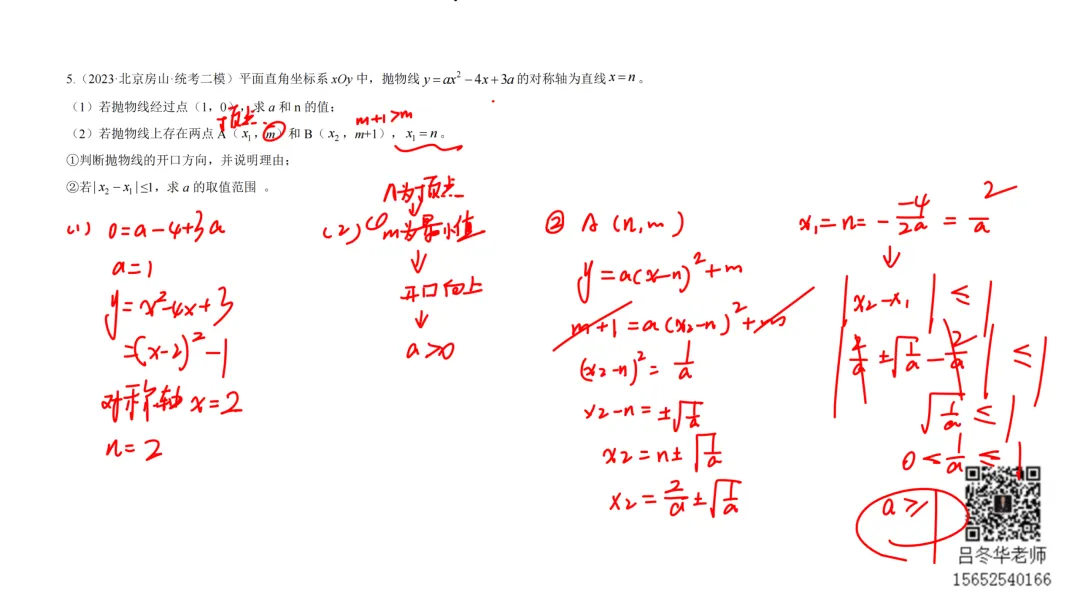 5.（2023·北京房山·统考二模）平面直角坐标系 xOy 中，抛物线 y=ax²−4x+3a 的对称轴为直线 x=n 。
（1）若抛物线经过点（1，0），求 a 和 n 的值；
顶点 m+1>m
（2）若抛物线上存在两点 A（x₁，m）和 B（x₂，m+1），x₁=n 。
①判断抛物线的开口方向，并说明理由；
②若|x₂−x₁|≤1，求 a 的取值范围 。
(1) 0=a-4+3a
a=1
y=x²-4x+3
=(x-2)²-1
对称轴 x=2
n=2
A为顶点
(2) ① m为最小值
↓
开口向上
↓
a>0
② A (n,m)
y=a(x-n)²+m
m+1=a(x2-n)²+m
(x2-n)²=1/a
x2-n=±√(1/a)
x2=n±√(1/a)
x2=2/a±√(1/a)
x₁=n=-(-4)/(2a)=2/a
↓
|x2-x₁|≤1
|2/a±√(1/a)-2/a|≤1
√(1/a)≤1
0<1/a≤1
a≥1
吕冬华老师
15652540166